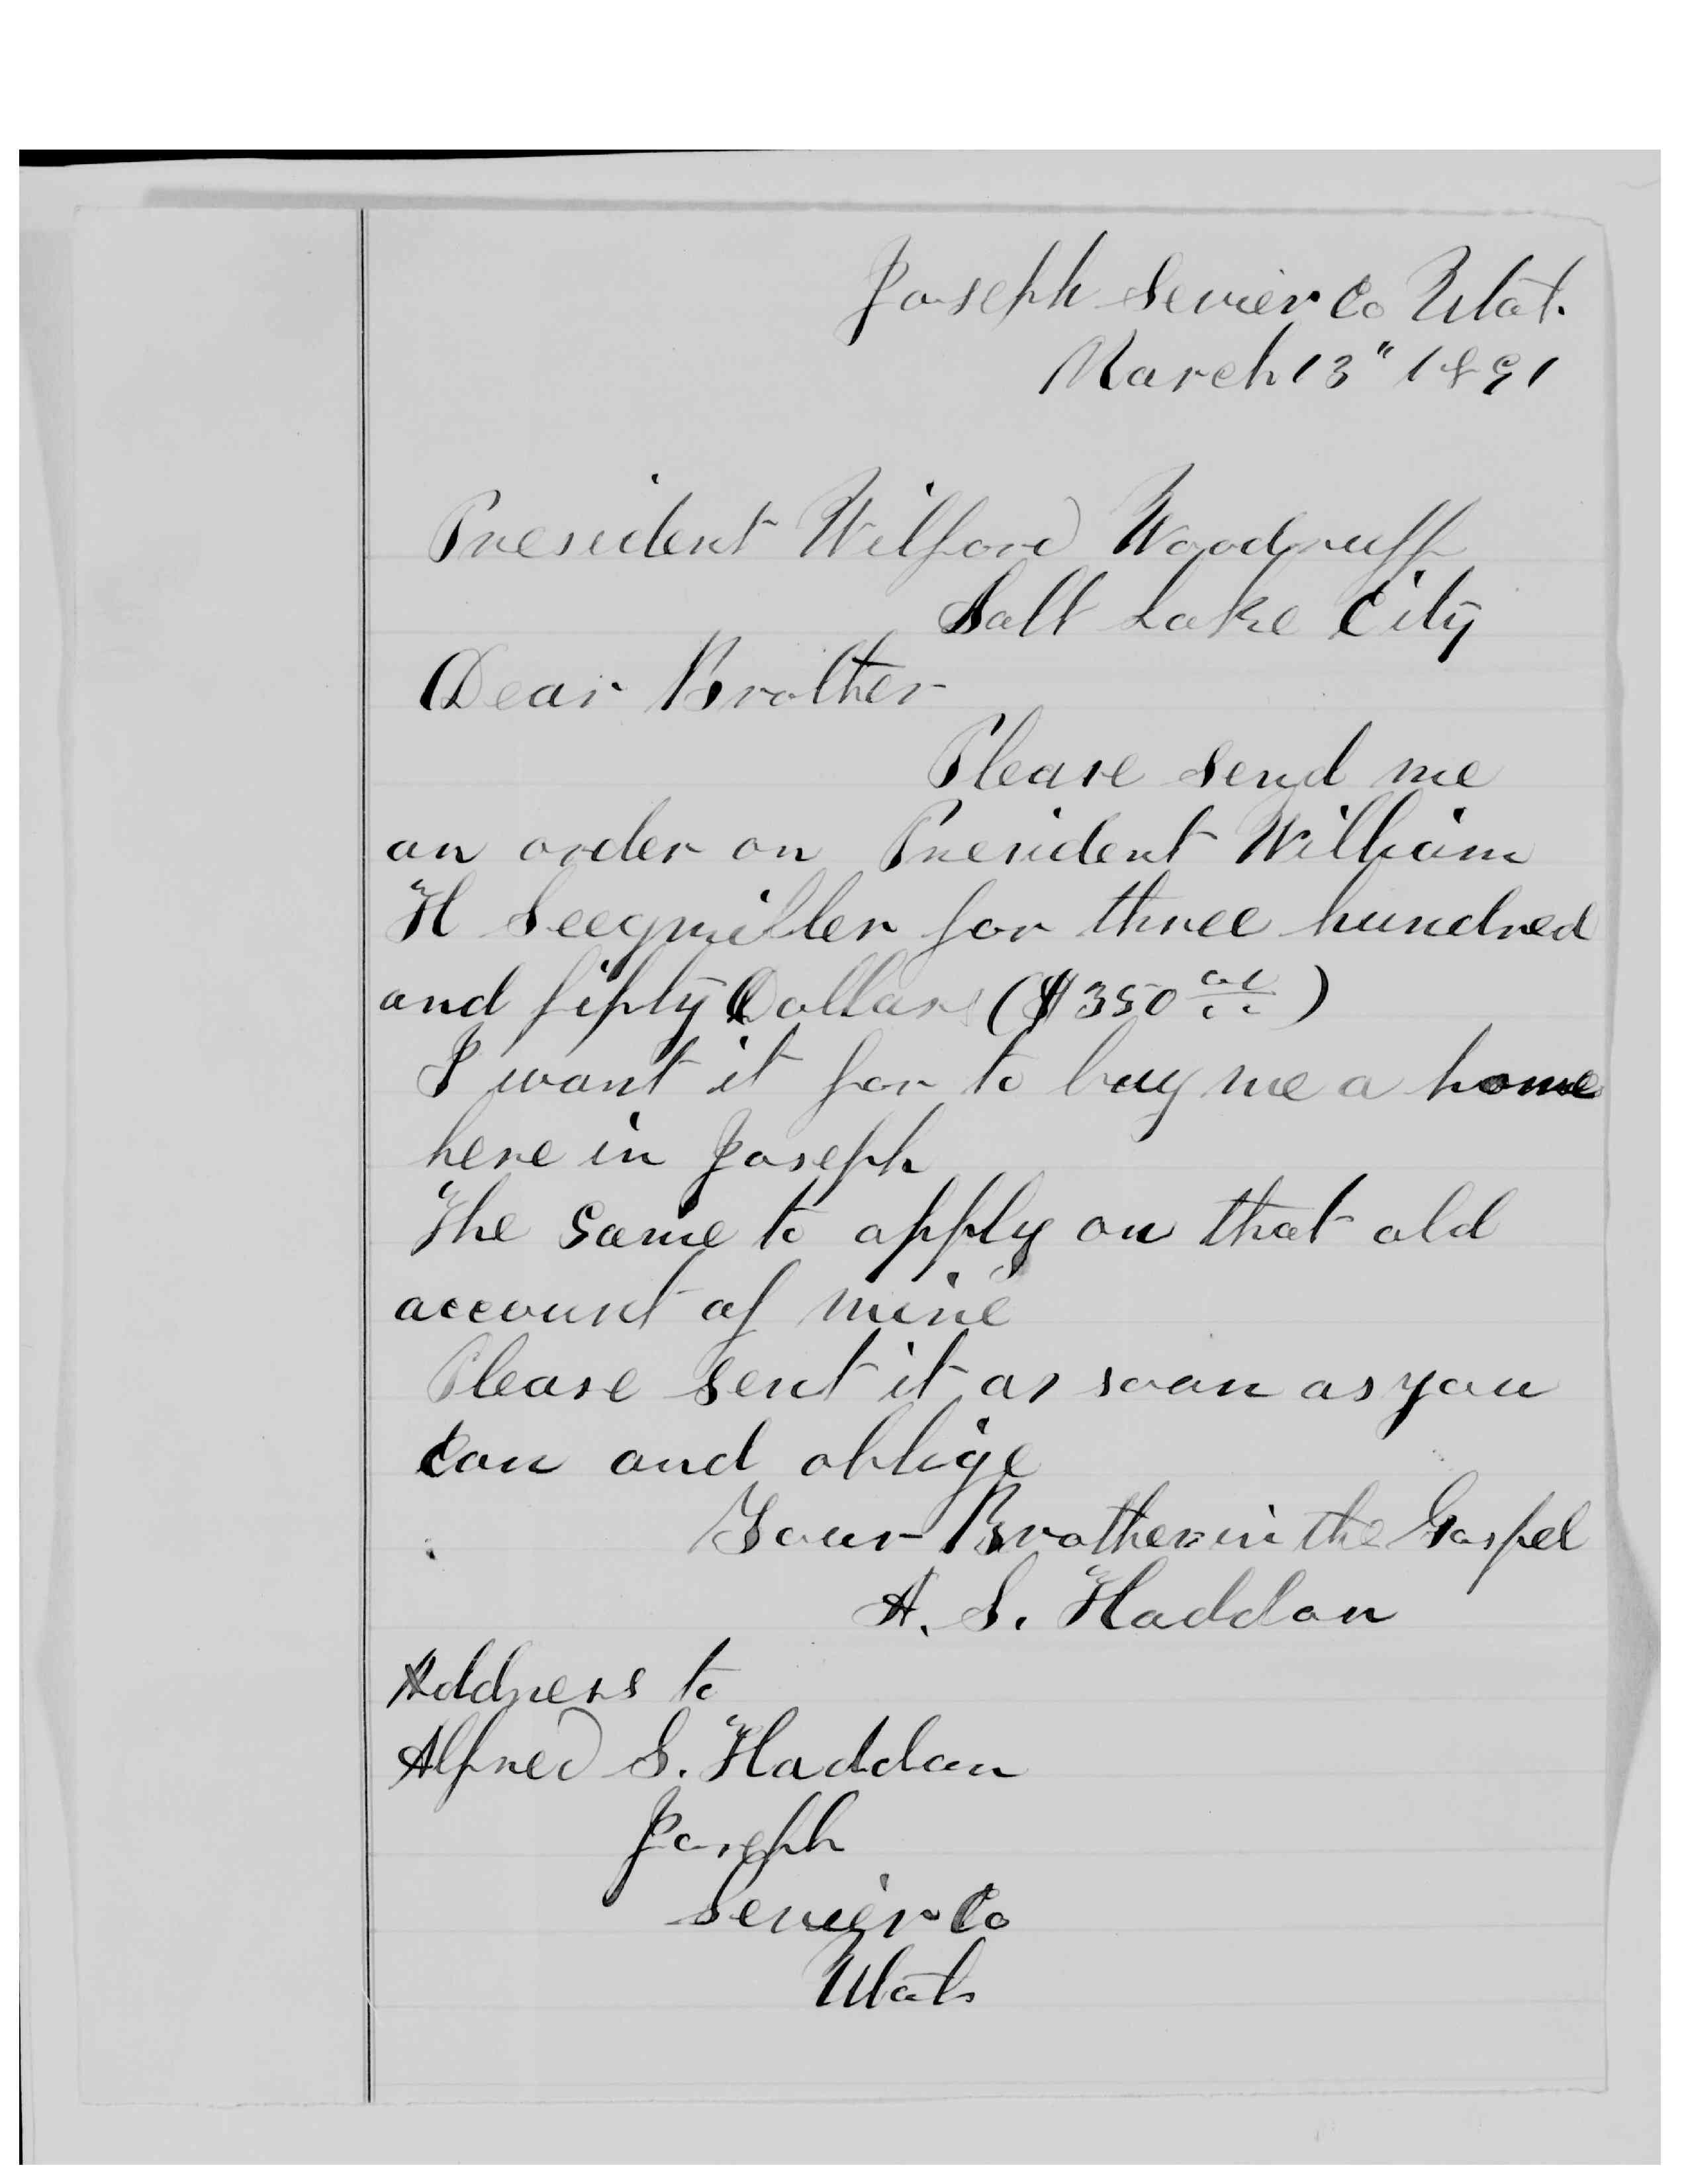 Joseph Sevier Co Utah.
March 13" 1891
President Wilford Woodruff
Salt Lake City
Dear Brother
Please send me
an order on President William
H Seegmiller for three hundred
and fifty Dollars ($350 00/00)
I want it for to buy me a home
here in Joseph
The same to apply on that old
account of mine
Please sent it as soon as you
can and oblige
Your Brother in the Gospel
A. S. Haddon
Address to
Alfred S. Haddon
Joseph
Sevier Co
Utah